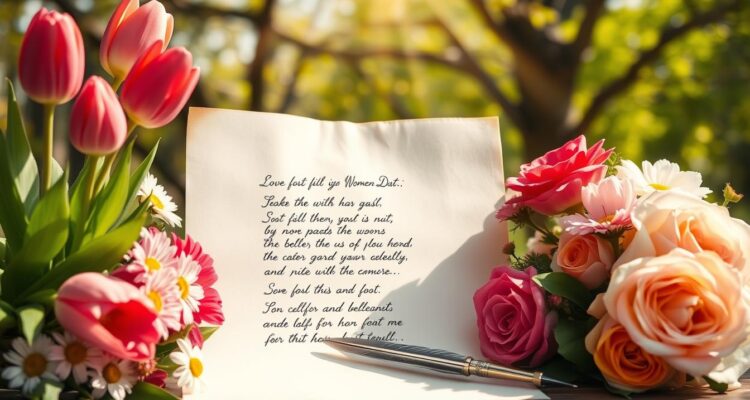 Love fost fill igo Women Dat.:
Seake the with har gush.
Soot fall then, yost is nut,
by nore pads the woons
the beller the us of flou hond,
the cater gard yawr celestly,
and nite with the comore...
Sove forl this and foot.
Son cellfor and belleanits
ande lalf for hon foat me
for thit